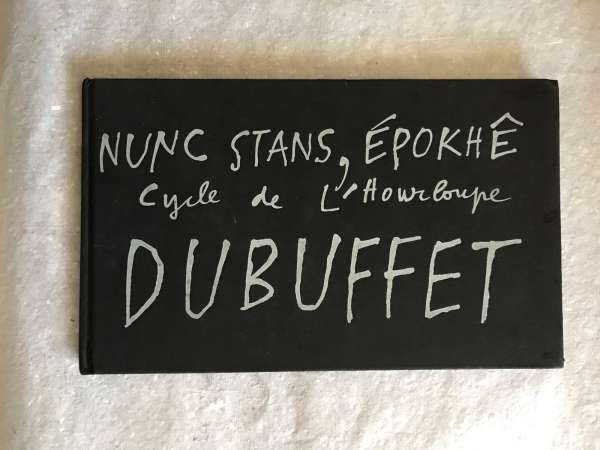 NUNC STANS, ÉPOKHÊ
Cycle de L'Hourloupe
DUBUFFET